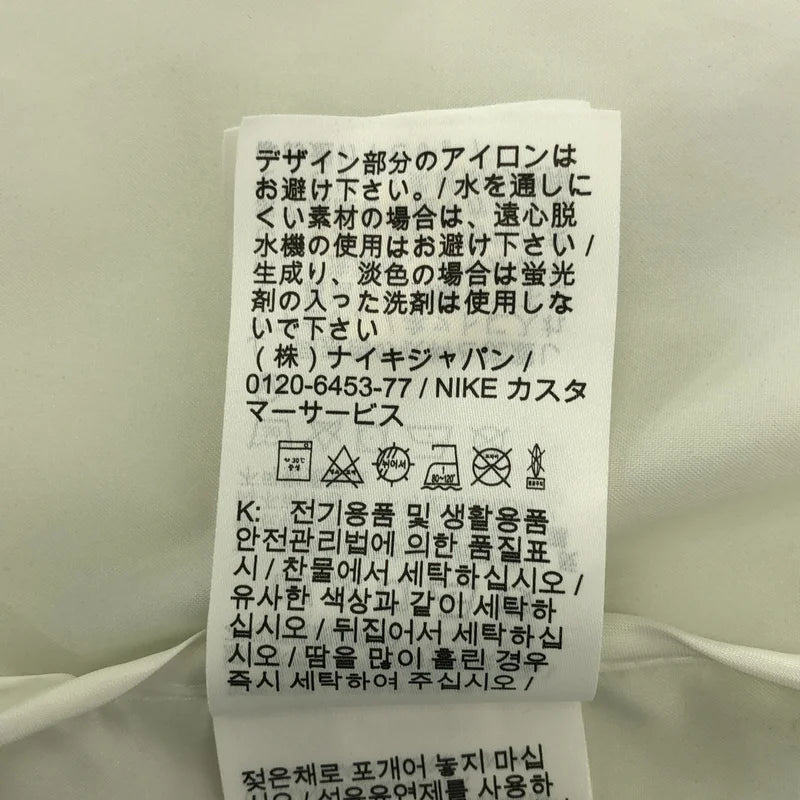 デザイン部分のアイロンは
お避け下さい。/ 水を通しに
くい素材の場合は、遠心脱
水機の使用はお避け下さい /
生成り、淡色の場合は蛍光
剤の入った洗剤は使用しな
いで下さい
(株)ナイキジャパン /
0120-6453-77 / NIKE カスタ
マーサービス
80~120
K: 전기용품 및 생활용품
안전관리법에 의한 품질표
시 / 찬물에서 세탁하십시오 /
유사한 색상과 같이 세탁하
십시오 / 뒤집어서 세탁하십
시오 / 땀을 많이 흘린 경우
즉시 세탁하여 주십시오 /
젖은채로 포개어 놓지 마십
시오 / 섬유유연제를 사용하